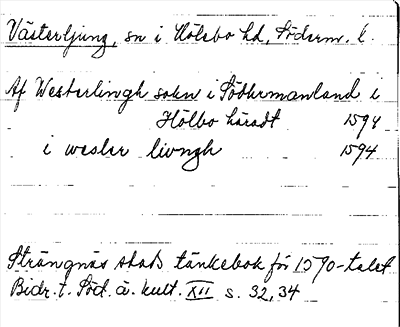 Västerljung, sn i Hölebo hd, Söderm. l.
Af Westerlingh sokn i Södhermanland i
Hölbo häradt 1594
i wester liongh 1594
Strängnäs stads tänkebok för 1590-talet
Bidr. t. Söd. ä. kult. XII s. 32, 34